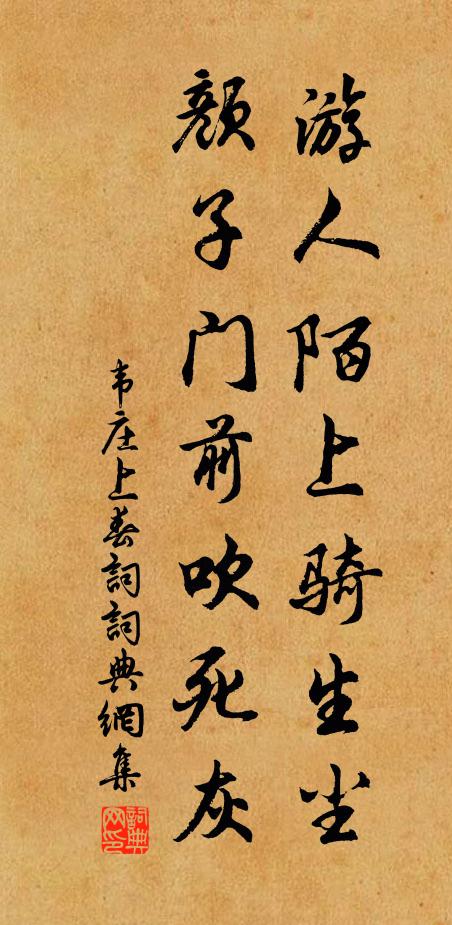 游人陌上骑生尘
颜子门前吹死灰
韦庄上春詞詞典網集
詞典网印